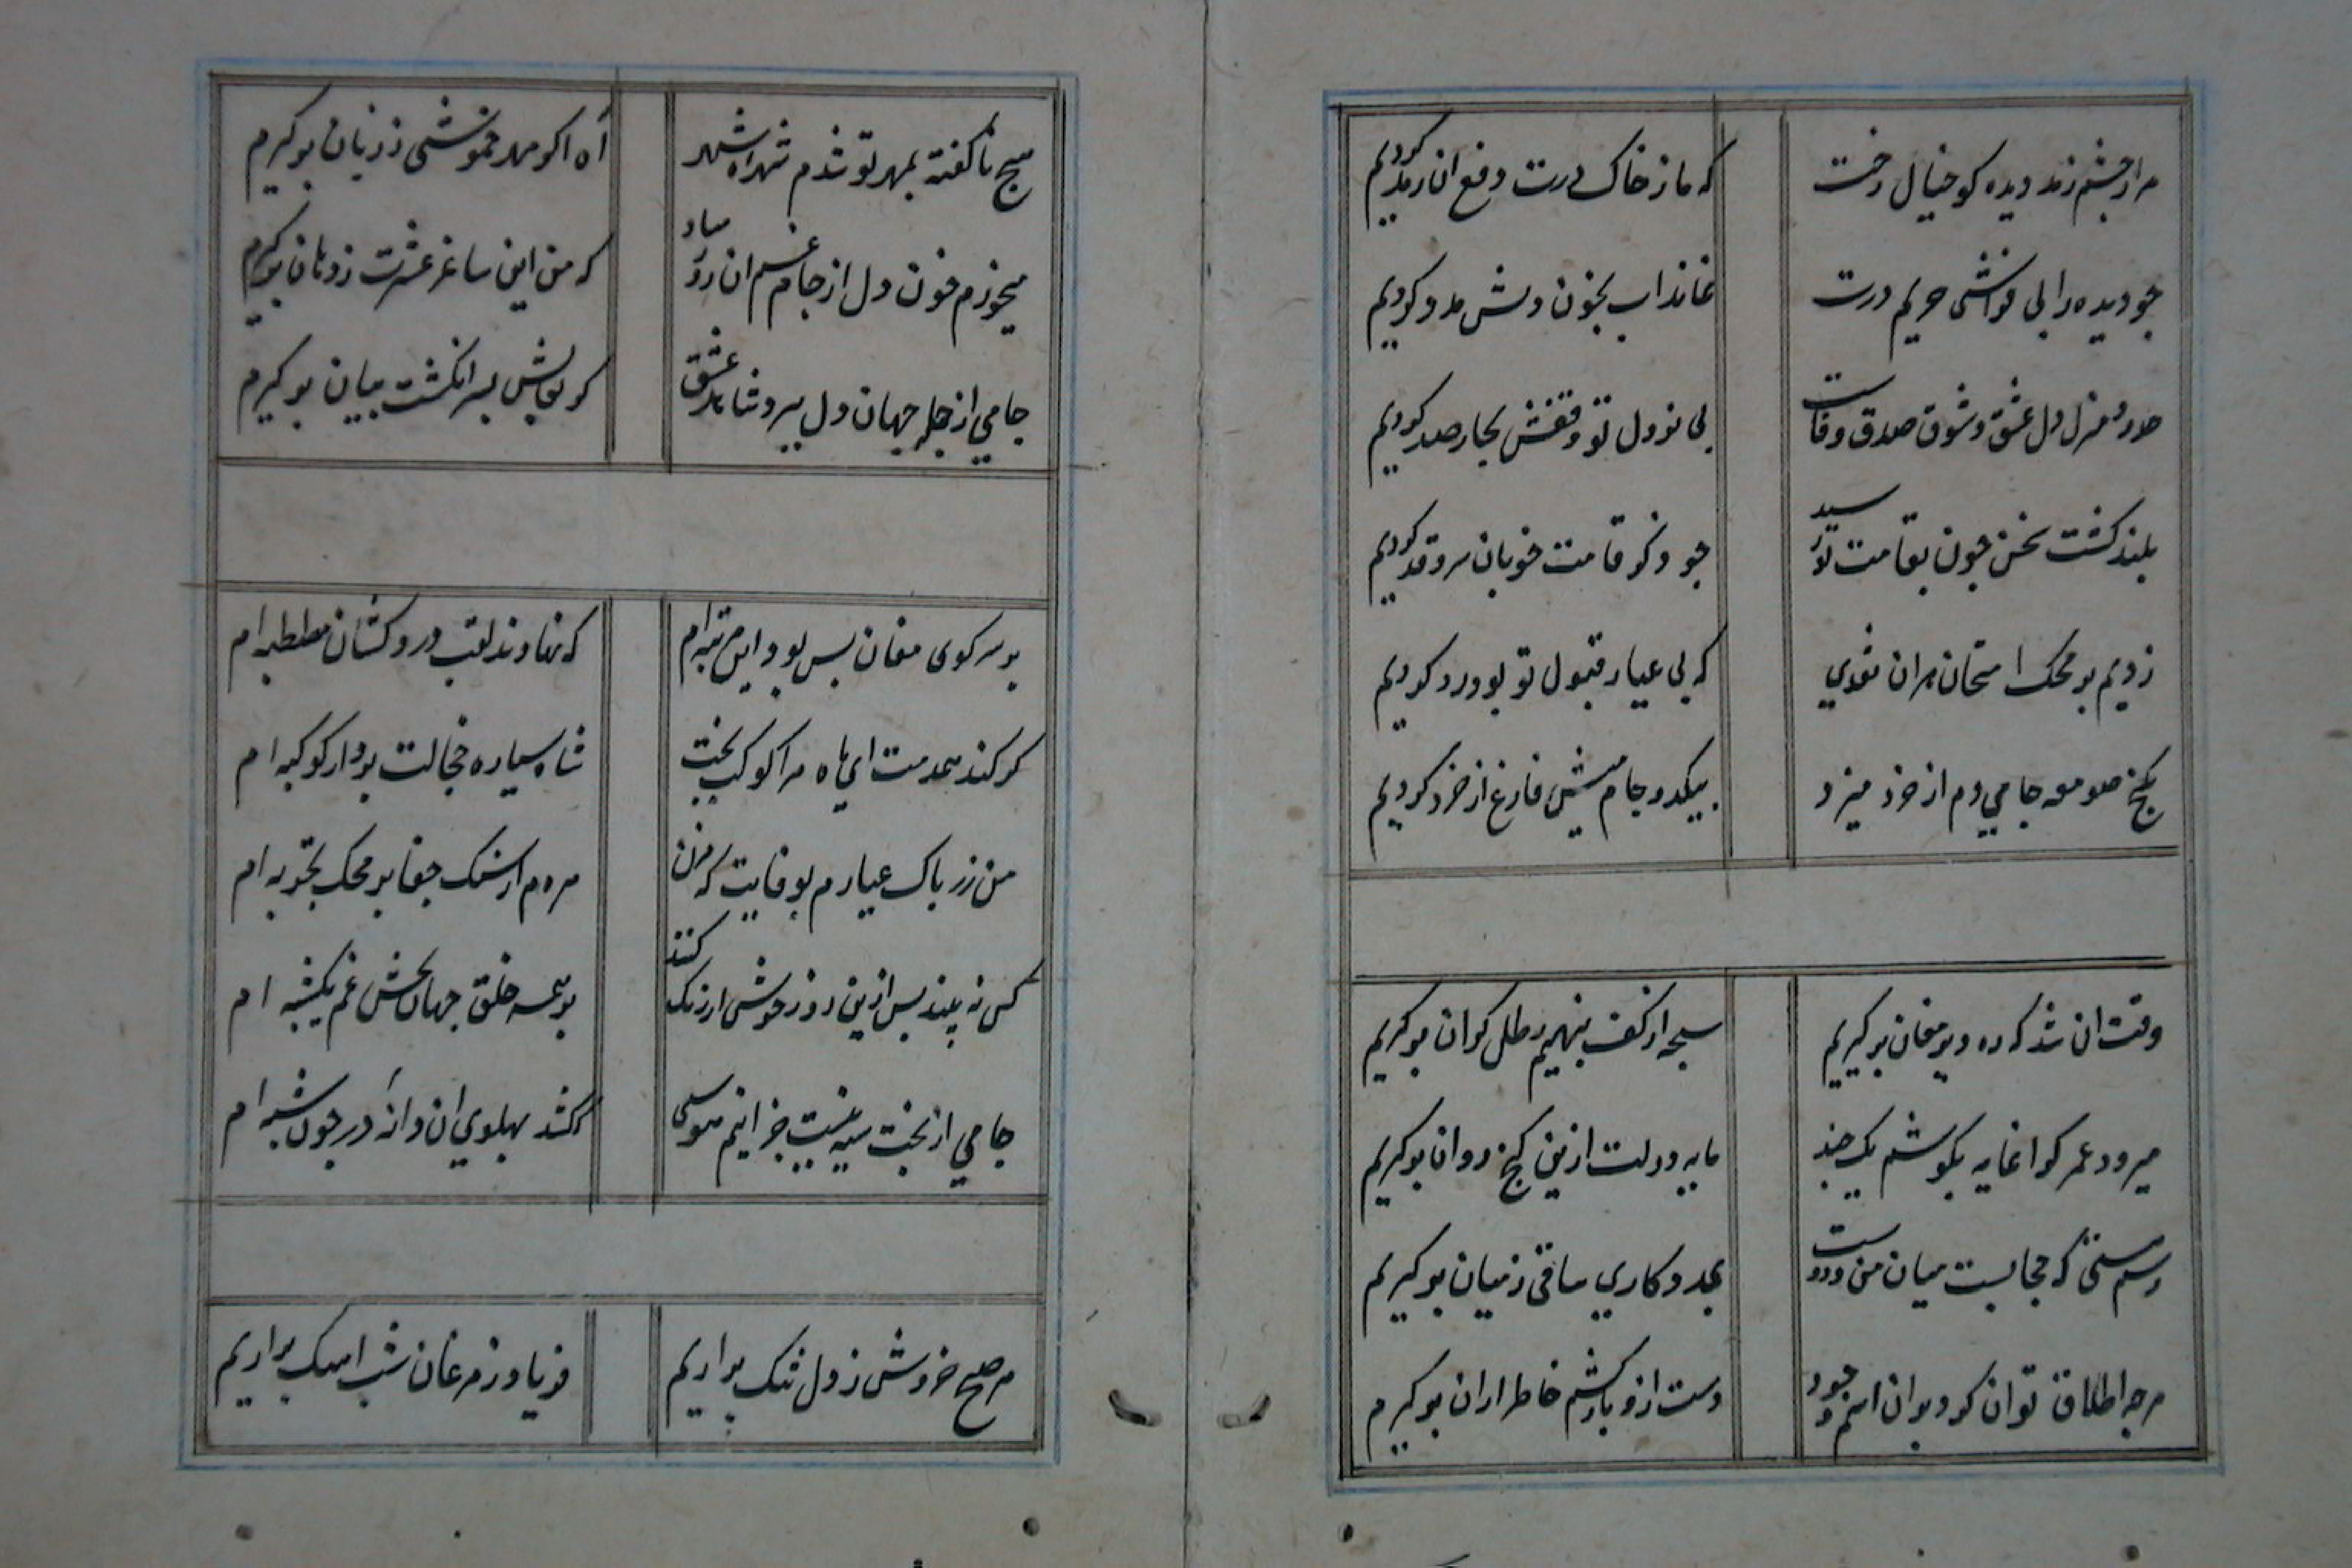 مرا ز چشم زند دیده کو خیال رخت
که ما ز خاک درت دفع آن رمد کردیم
چو دیده را بی فراشی حریم درت
نماند آب بخون دلش مدد کردیم
دل عشق و شوق صدق و وفاست
بی نزول تو وقفش بچار صد کردیم
بلند گشت سخن چون بقامت تو رسید
چو ذکر قامت خوبان سرو قد کردیم
زدیم بر محک امتحان هران نقدی
که بی عیار قبول تو بود رد کردیم
بکنج صومعه جامی دم از خرد میزد
بیکدو جام میش فارغ از خرد کردیم
وقت ان شد که ره دیر مغان برگیریم
سبحه از کف بنهیم رطل گران برگیریم
میرود عمر گرانمایه بکوشیم یک چند
مایه دولت ازین گنج روان برگیریم
رسم هستی که حجابست میان من و دوست
بمددکاری ساقی ز میان برگیریم
هرچه اطلاق توان کرد بران اسم وجود
دست ازو باز کشیم خاطر ازان برگیریم
هیچ ناگفته بمهر تو شدم شهره شهر
آه اگر مهر خموشی ز زبان برگیرم
میخورم خون دل از جام غم ان روز مباد
که من این ساغر عشرت ز دهان برگیرم
جامی از جمله جهان دل ببرد شاهد عشق
گر نقابش بسر انگشت بیان برگیرم
بر سر کوی مغان بس بود این مرتبه ام
که نهادند لقب دردکشان مصطبه ام
گر کند خدمت ای ماه مرا کوکب بخت
شاه سیاره خجالت برد از کوکبه ام
من زر پاک عیارم بوفایت که مزن
هر دم از سنگ جفا بر محک تجربه ام
کس نه بیند پس ازین روز خوش ار زنک کنند
بر همه خلق جهان بخش غم یکشبه ام
جامی از بخت سیه نیست جز اینم هوسی
کشد بپهلوی ان دانه در چون شبه ام
هر صبح خروش ز دل تنک براریم
فریاد ز مرغان شب اهنک براریم